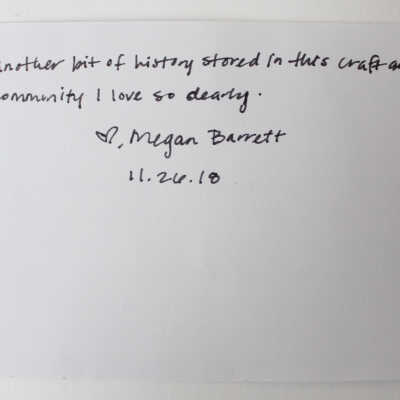 another bit of history stored in this craft an
community I love so dearly.
♡, Megan Barrett
11.26.18